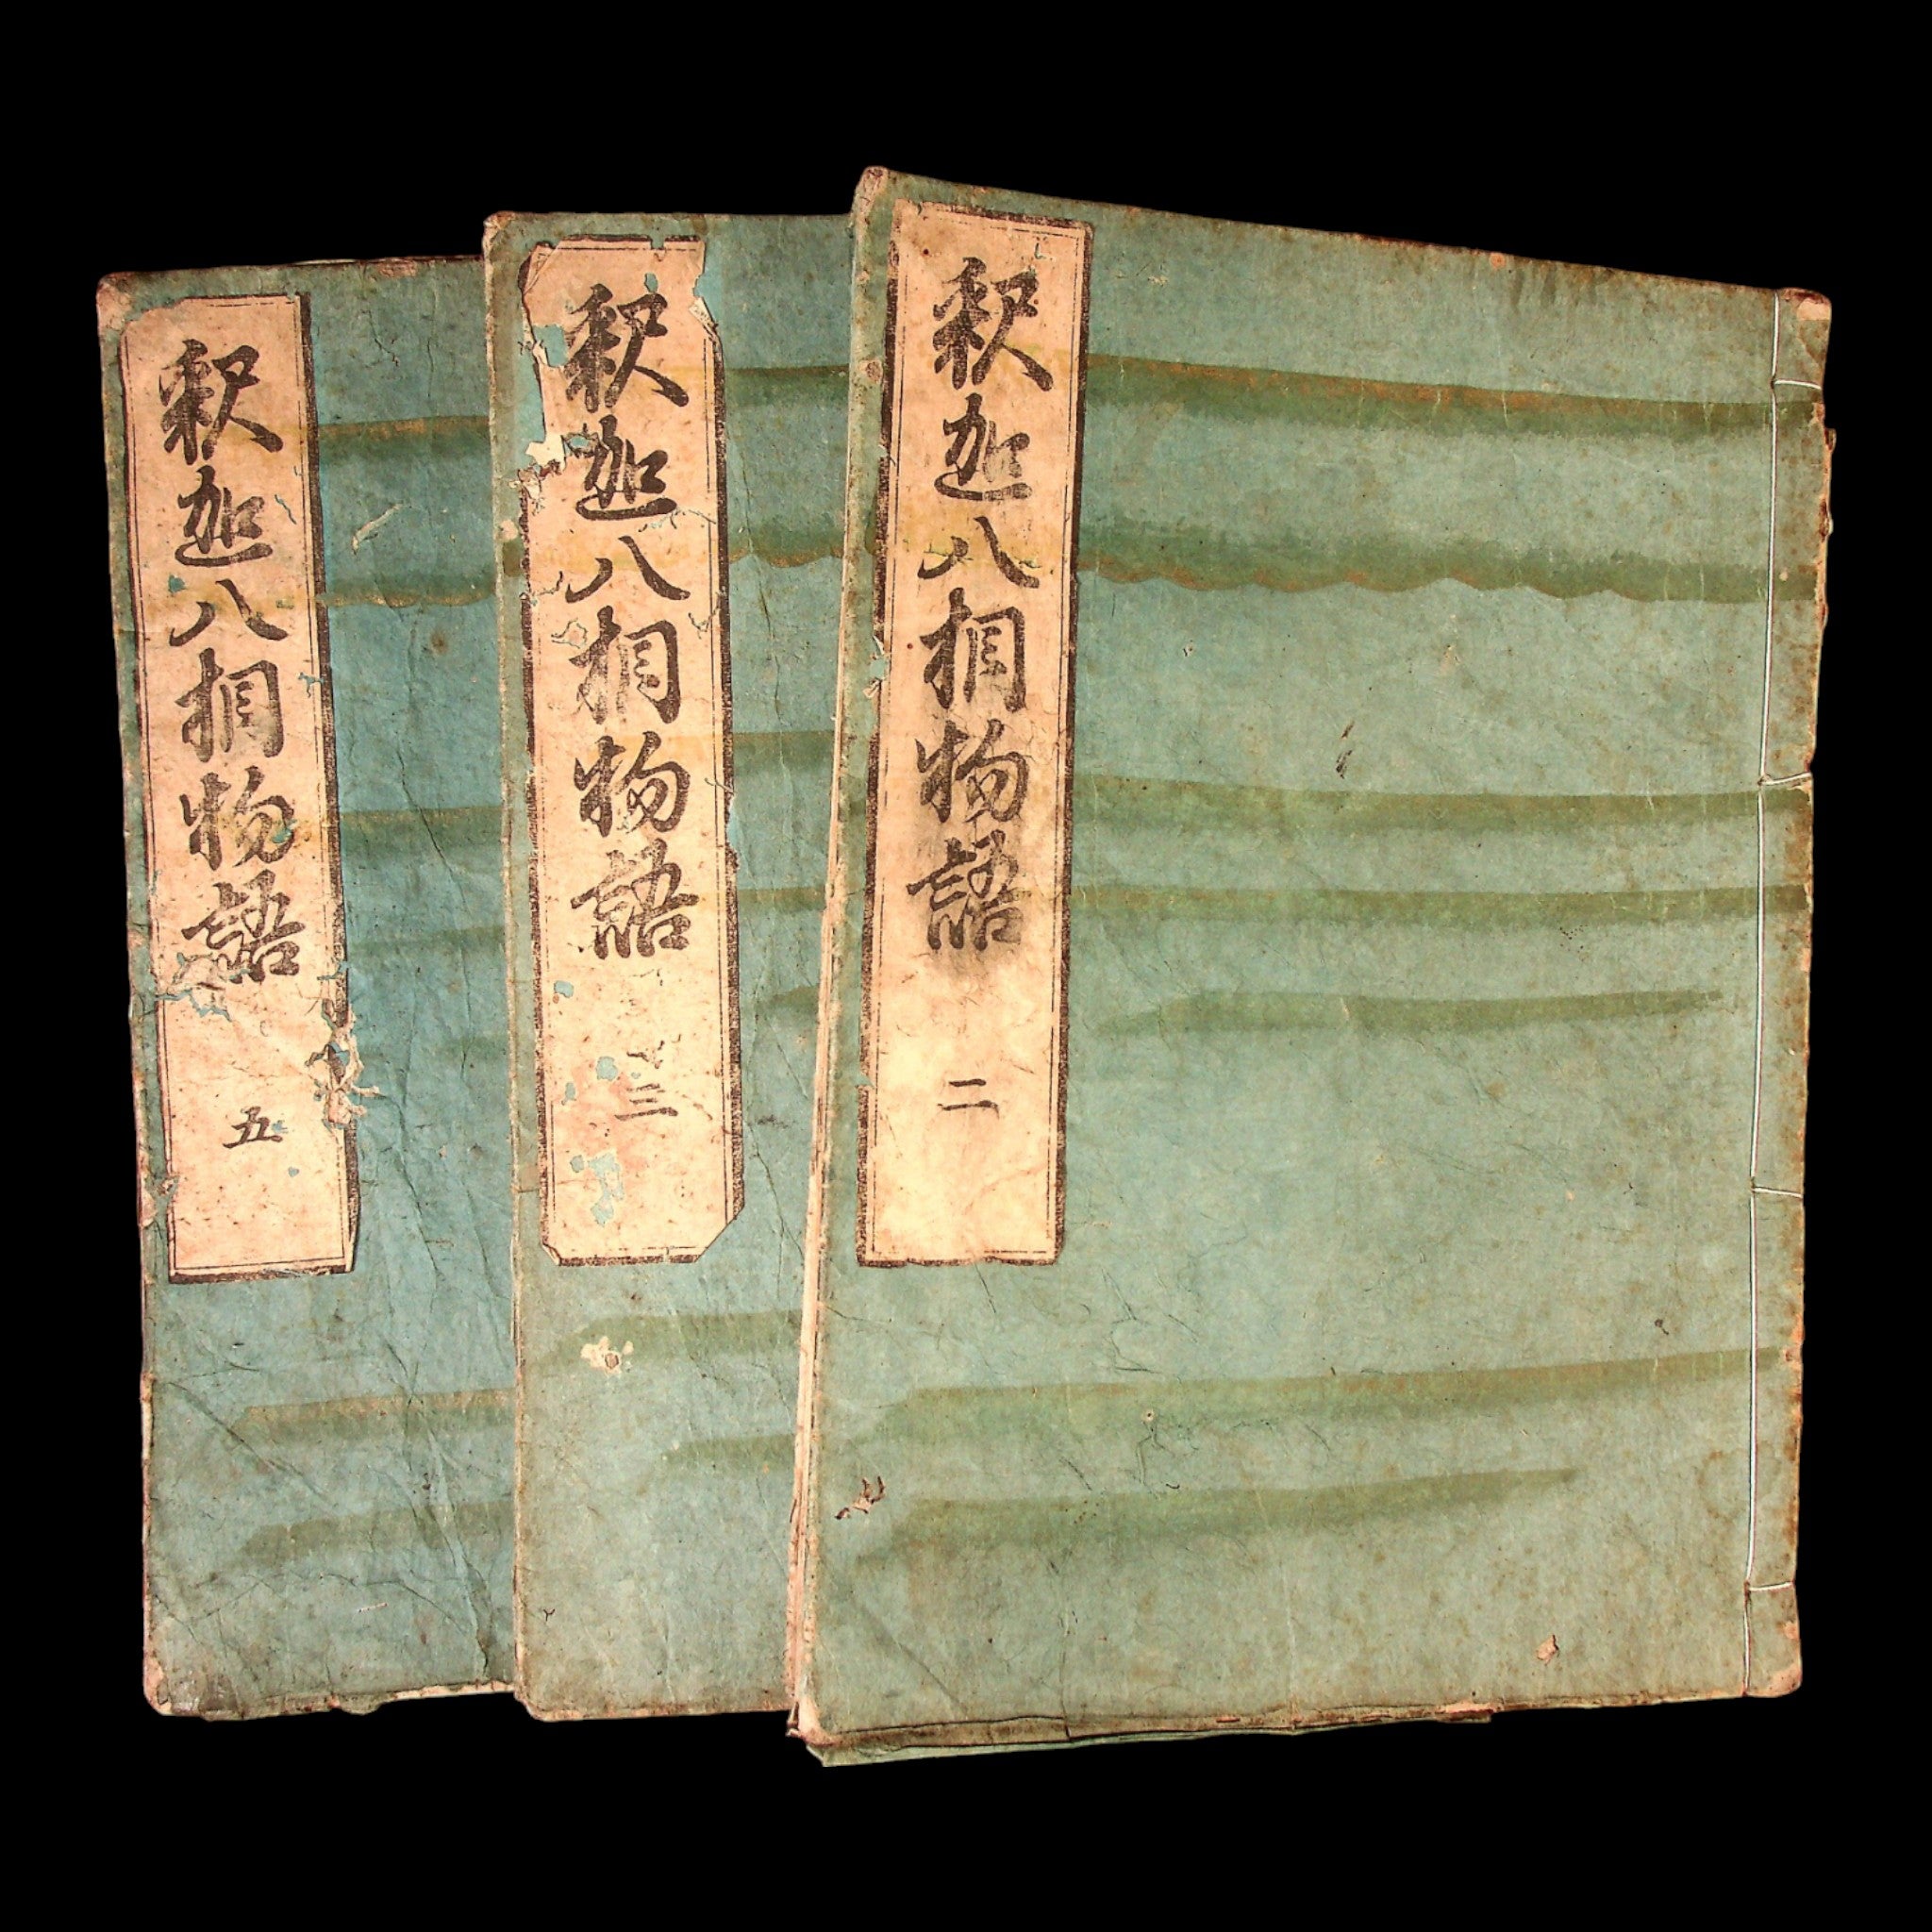 釈迦八相物語 二
釈迦八相物語 三
釈迦八相物語 五